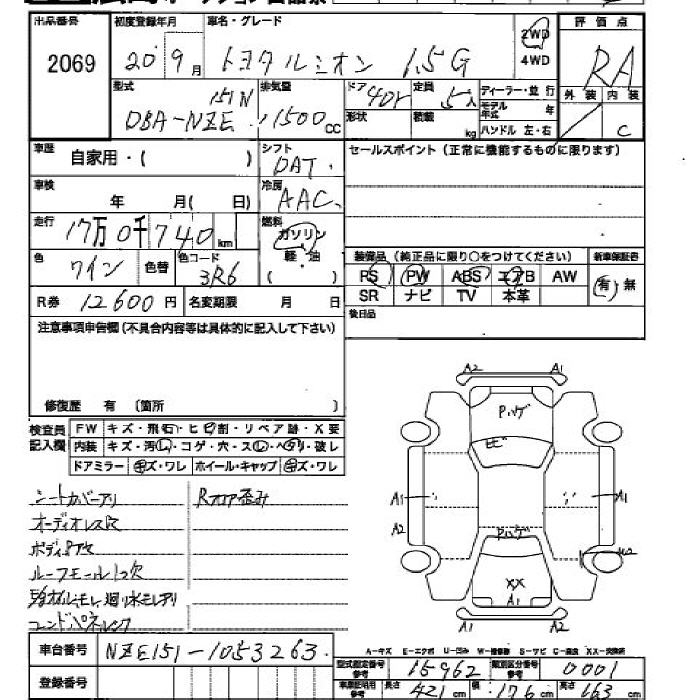 出品番号 初度登録年月 車名・グレード 評価点
2069 20 9月 トヨタ ルミオン 1.5G 2WD 4WD RA
型式 排気量 ドア 定員 ディーラー・並 行 外装 内装
DBA-NZE 151N 1500cc 4Dr 5人 モデル年式 年 C
形状 積載 kg ハンドル 左・右
車歴 自家用・( ) シフト セールスポイント(正常に機能するものに限ります)
DAT
車検 年 月( 日) 冷房 AAC
走行 17万0千740km 燃料 ガソリン 軽・油 ( )
色 ワイン 色替 色コード 3R6
装備品(純正品に限り○をつけてください) 新車保証書
PS PW ABS エアB AW 有・無
SR ナビ TV 本革
R券 12600円 名変期限 月 日 後日品
注意事項申告欄(不具合内容等は具体的に記入して下さい)
修復歴 有 〔箇所 〕
検査員記入欄 FW キズ・飛石・ヒビ割・リペア跡・X要
内装 キズ・汚レ・コゲ・穴・スレ・ヘタリ・破レ
ドアミラー キズ・ワレ ホイール・キャップ キズ・ワレ
シートカバーアリ
オーディオレス欠
ルーフモール1つ欠
コンドパネルレンフ
A2 A1
Pハゲ
ヒビ
A1 A1
A2
Pハゲ
U2
XX
A1
A2 A1
A-キズ E-エクボ U-凹み W-補修跡 S-サビ C-腐食 XX-交換済
車台番号 NZE151-1053263
登録番号
型式指定番号 参考 15962 類別区分番号 参考 0001
車庫証明用 参考 長さ 421cm 幅 176cm 高さ 163cm